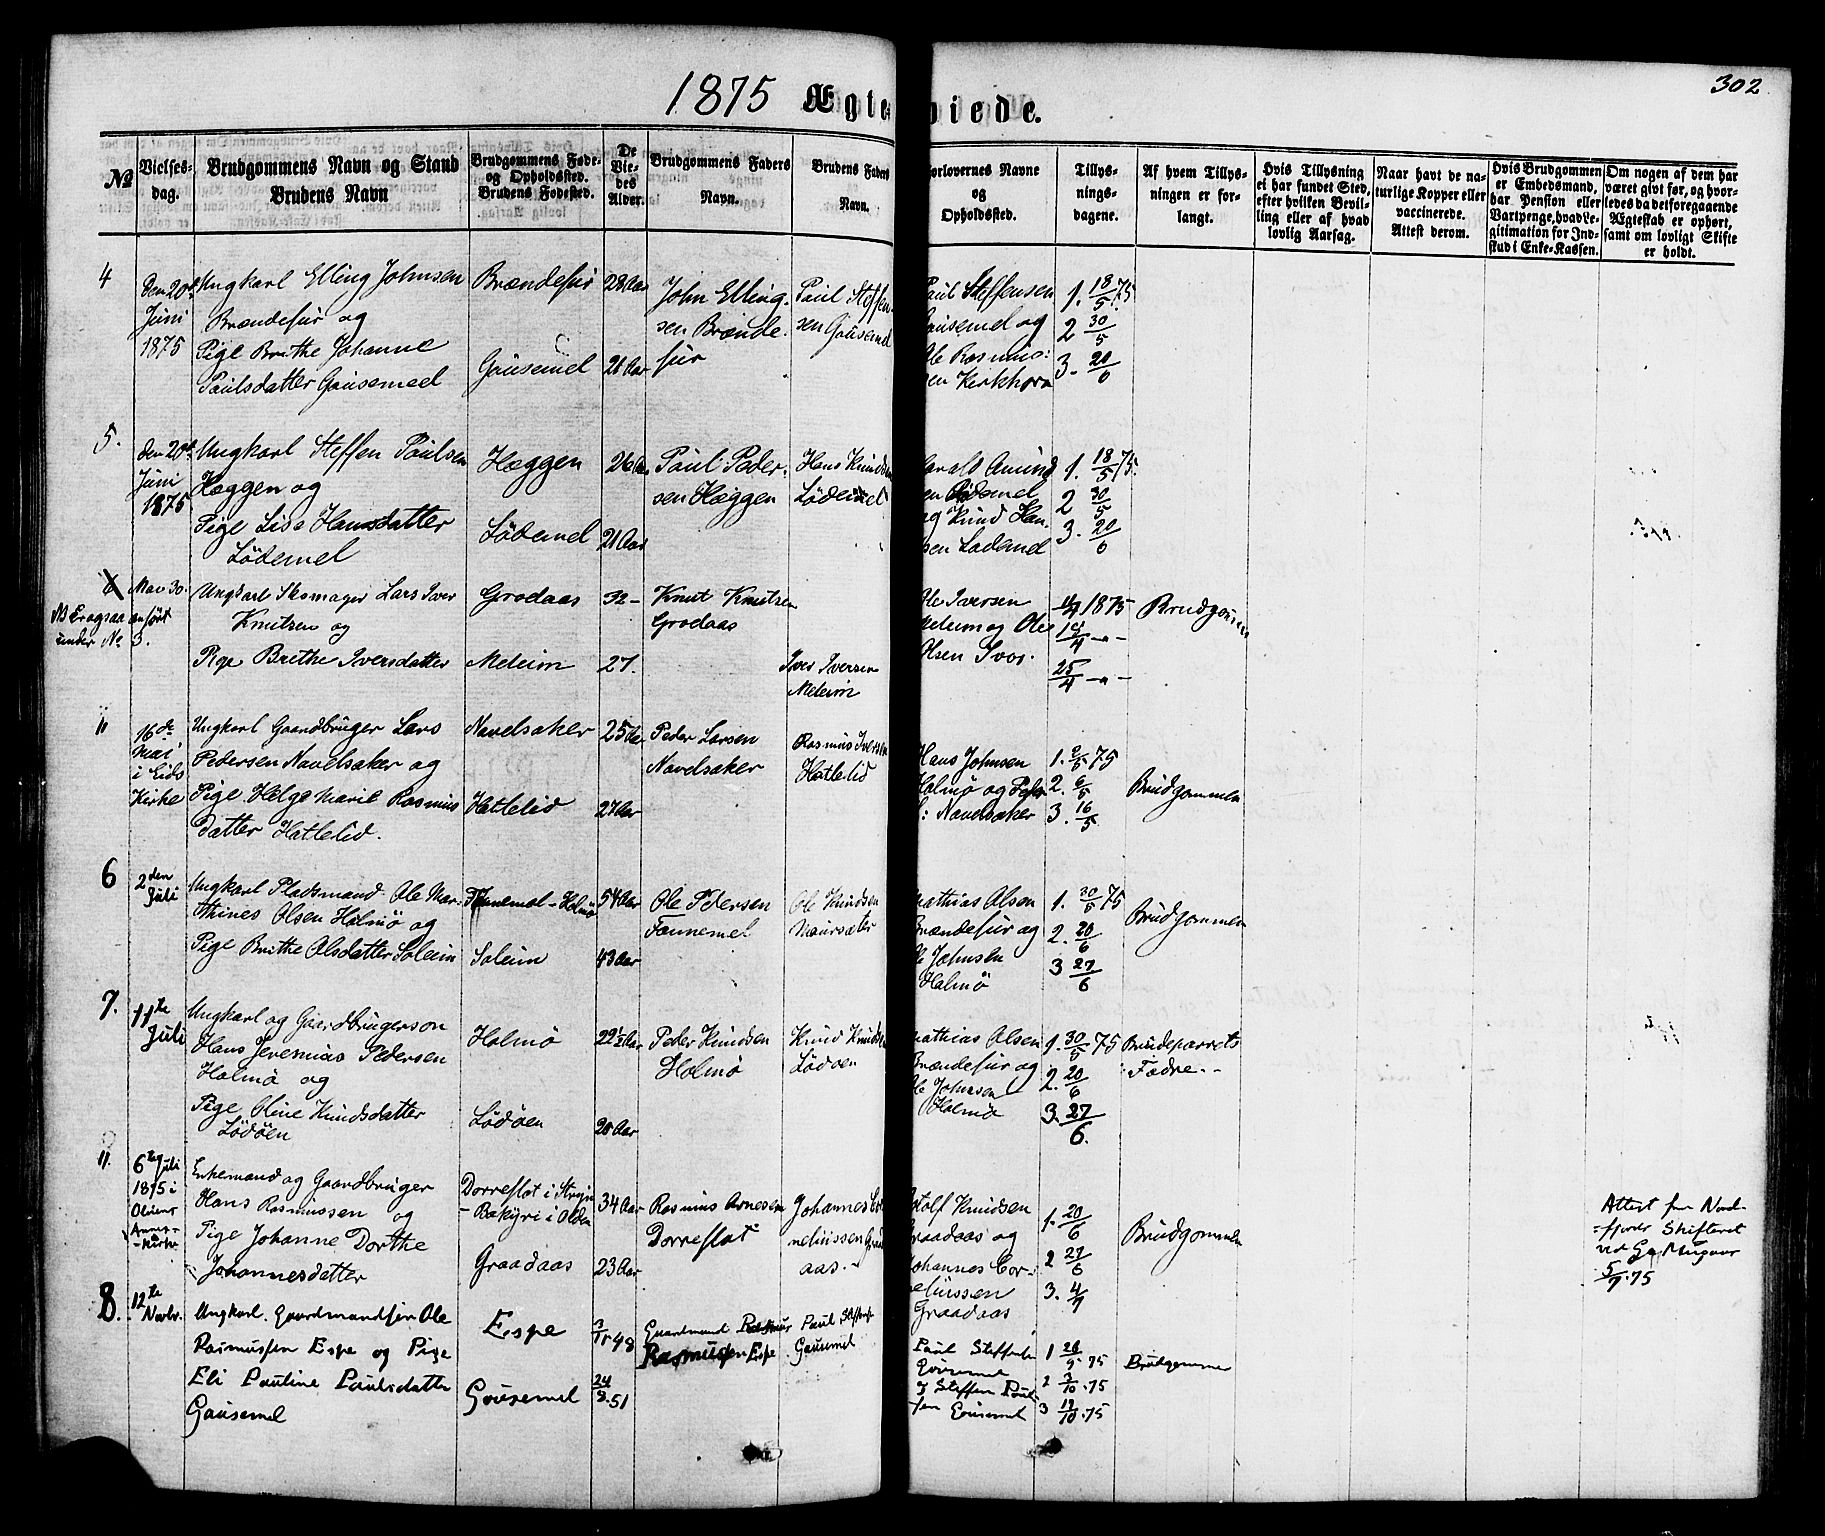 302
1875 Ægte- viede.
No
Vielses-
dag.
Brudgommens Navn og Stand
Brudens Navn
Brudgommens Føde-
og Opholdssted.
Brudens Fødested.
De
Vie-
des
Alder.
Brudgommens Faders
Navn.
Brudens Faders
Navn.
Forlovernes Navne
og
Opholdssted.
Tillys-
nings-
dagene.
Af hvem Tillys-
ningen er for-
langt.
Hvis Tillysning
ei har fundet Sted,
efter hvilken Bevil-
ling eller af hvad
lovlig Aarsag.
Naar havt de na-
turlige Kopper eller
vaccinerede.
Attest derom.
Hvis Brudgommen
er Embedsmand,
har Pension eller
Vartpenge, hvad Le-
gitimation for Ind-
skud i Enke-Kassen.
Om nogen af dem har
været givt før, og hvor-
ledes da det foregaaende
Ægteskab er ophørt,
samt om lovligt Skifte
er holdt.
4
Den 20de
Juni
1875
Ungkarl Elling Johnsen
Brændefur og
Pige Brithe Johanne
Paulsdatter Gausemeel
Brændefur
Gausemel
28 Aar
21 Aar
John Elling-
sen Brænde-
fur
Paul Steffen-
sen Gausemel
Paul Steffensen
Gausemel og
Ole Rasmus-
sen Kirkhorn
1. 18/5 75
2 30/5
3. 20/6
5.
Den 20de
Juni
1875
Ungkarl Steffen Paulsen
Hæggen og
Pige Lise Hansdatter
Lödemel
Hæggen
Lödemel
26 Aar
21 Aar
Paul Peder-
sen Hæggen
Hans Knudsen
Lödemel
Harald Amund
sen Lödemel
og Knud Han-
sen Lødemel
1. 18/5 75.
2 30/5
3. 20/6
Mai 30.
NB Ogsaa anført
under No 3.
Ungkarl Skomager Lars Iver
Knutsen og
Pige Brithe Iversdatter
Grodaas
Meleim
32 -
27.
Knut Knutsen
Grodaas
Iver Iversen
Meleim
Ole Iversen
Meleim og Ole
Olsen Svor.
4/4 1875
14/4 - " -
25/4 - " -
Brudgommen
"
16de
Mai
i Eids
Kirke
Ungkarl Gaardbruger Lars
Pedersen Navelsaker og
Pige Helge Marie Rasmus
datter Hatlelid.
Navelsaker
Hatlelid
25 Aar
27 Aar
Peder Larsen
Navelsaker
Rasmus Iversen
Hatlelid
Hans Johnsen
Holmö og Peder
L: Navelsaker
1. 2/5 75
2. 6/5
3. 16/5
Brudgommen
6
2den
Juli
Ungkarl Pladsmand Ole Mar-
thines Olsen Holmö og
Pige Brithe Olsdatter Soleim
Fannemel - Holmö
Soleim
54 Aar
43 Aar
Ole Pedersen
Fannemel
Ole Knudsen
Maursæter
Mathias Olson
Brændefur og
Ole Johnsen
Holmö
1. 30/5 75
2. 20/6
3 27/6
Brudgommen
7.
11te
Juli
Ungkarl og Gaardbrugerson
Hans Jeremias Pedersen
Holmö og
Pige Oline Knudsdatter
Lödöen
Holmö
Lödöen
22 1/2 Aar
28 Aar
Peder Knudsen
Holmö
Knud Knudsen
Lödöen
Mathias Olsen
Brændefur og
Ole Johnsen
Holmö
1. 30/5 75
2. 20/6
3. 27/6.
Brudeparrets
Fædre.
"
6te Juli
1875 i
Oldens
Annex-
-Kirke
Enkemand og Gaardbruger
Hans Rasmussen og
Pige Johanne Dorthe
Johannesdatter
Dorreflot i Stryn
- Bakyri i Olden
Graadaas
34 Aar
23 Aar
Rasmus Arnesen
Dorreflot
Johannes Cor-
neliussen Graad
aas.
Rolf Knudsen
Graadaas og
Johannes Cor-
neliussen
Graadaas
1. 20/6
2 27/6
3. 4/7
Brudgommen
Attest fra Nord-
-fjords Skifteret
ved G. Mugaas
5/7.75
8.
12te
Novbr.
Ungkarl. Gaardmandssøn Ole
Rasmussen Espe og Pige
Eli Pauline Paulsdatter
Gausemel
Espe
Gausemel
3/11 48
24/8.51
Gaardmand Rasmus
Rasmussen Espe
Paul Steffens
Gausemel
Paul Steffen
Gausemel
og Steffen Paul-
sen Gausemel
1 26/9.75
2 3/10.75
3 17/10.75
Brudgomme